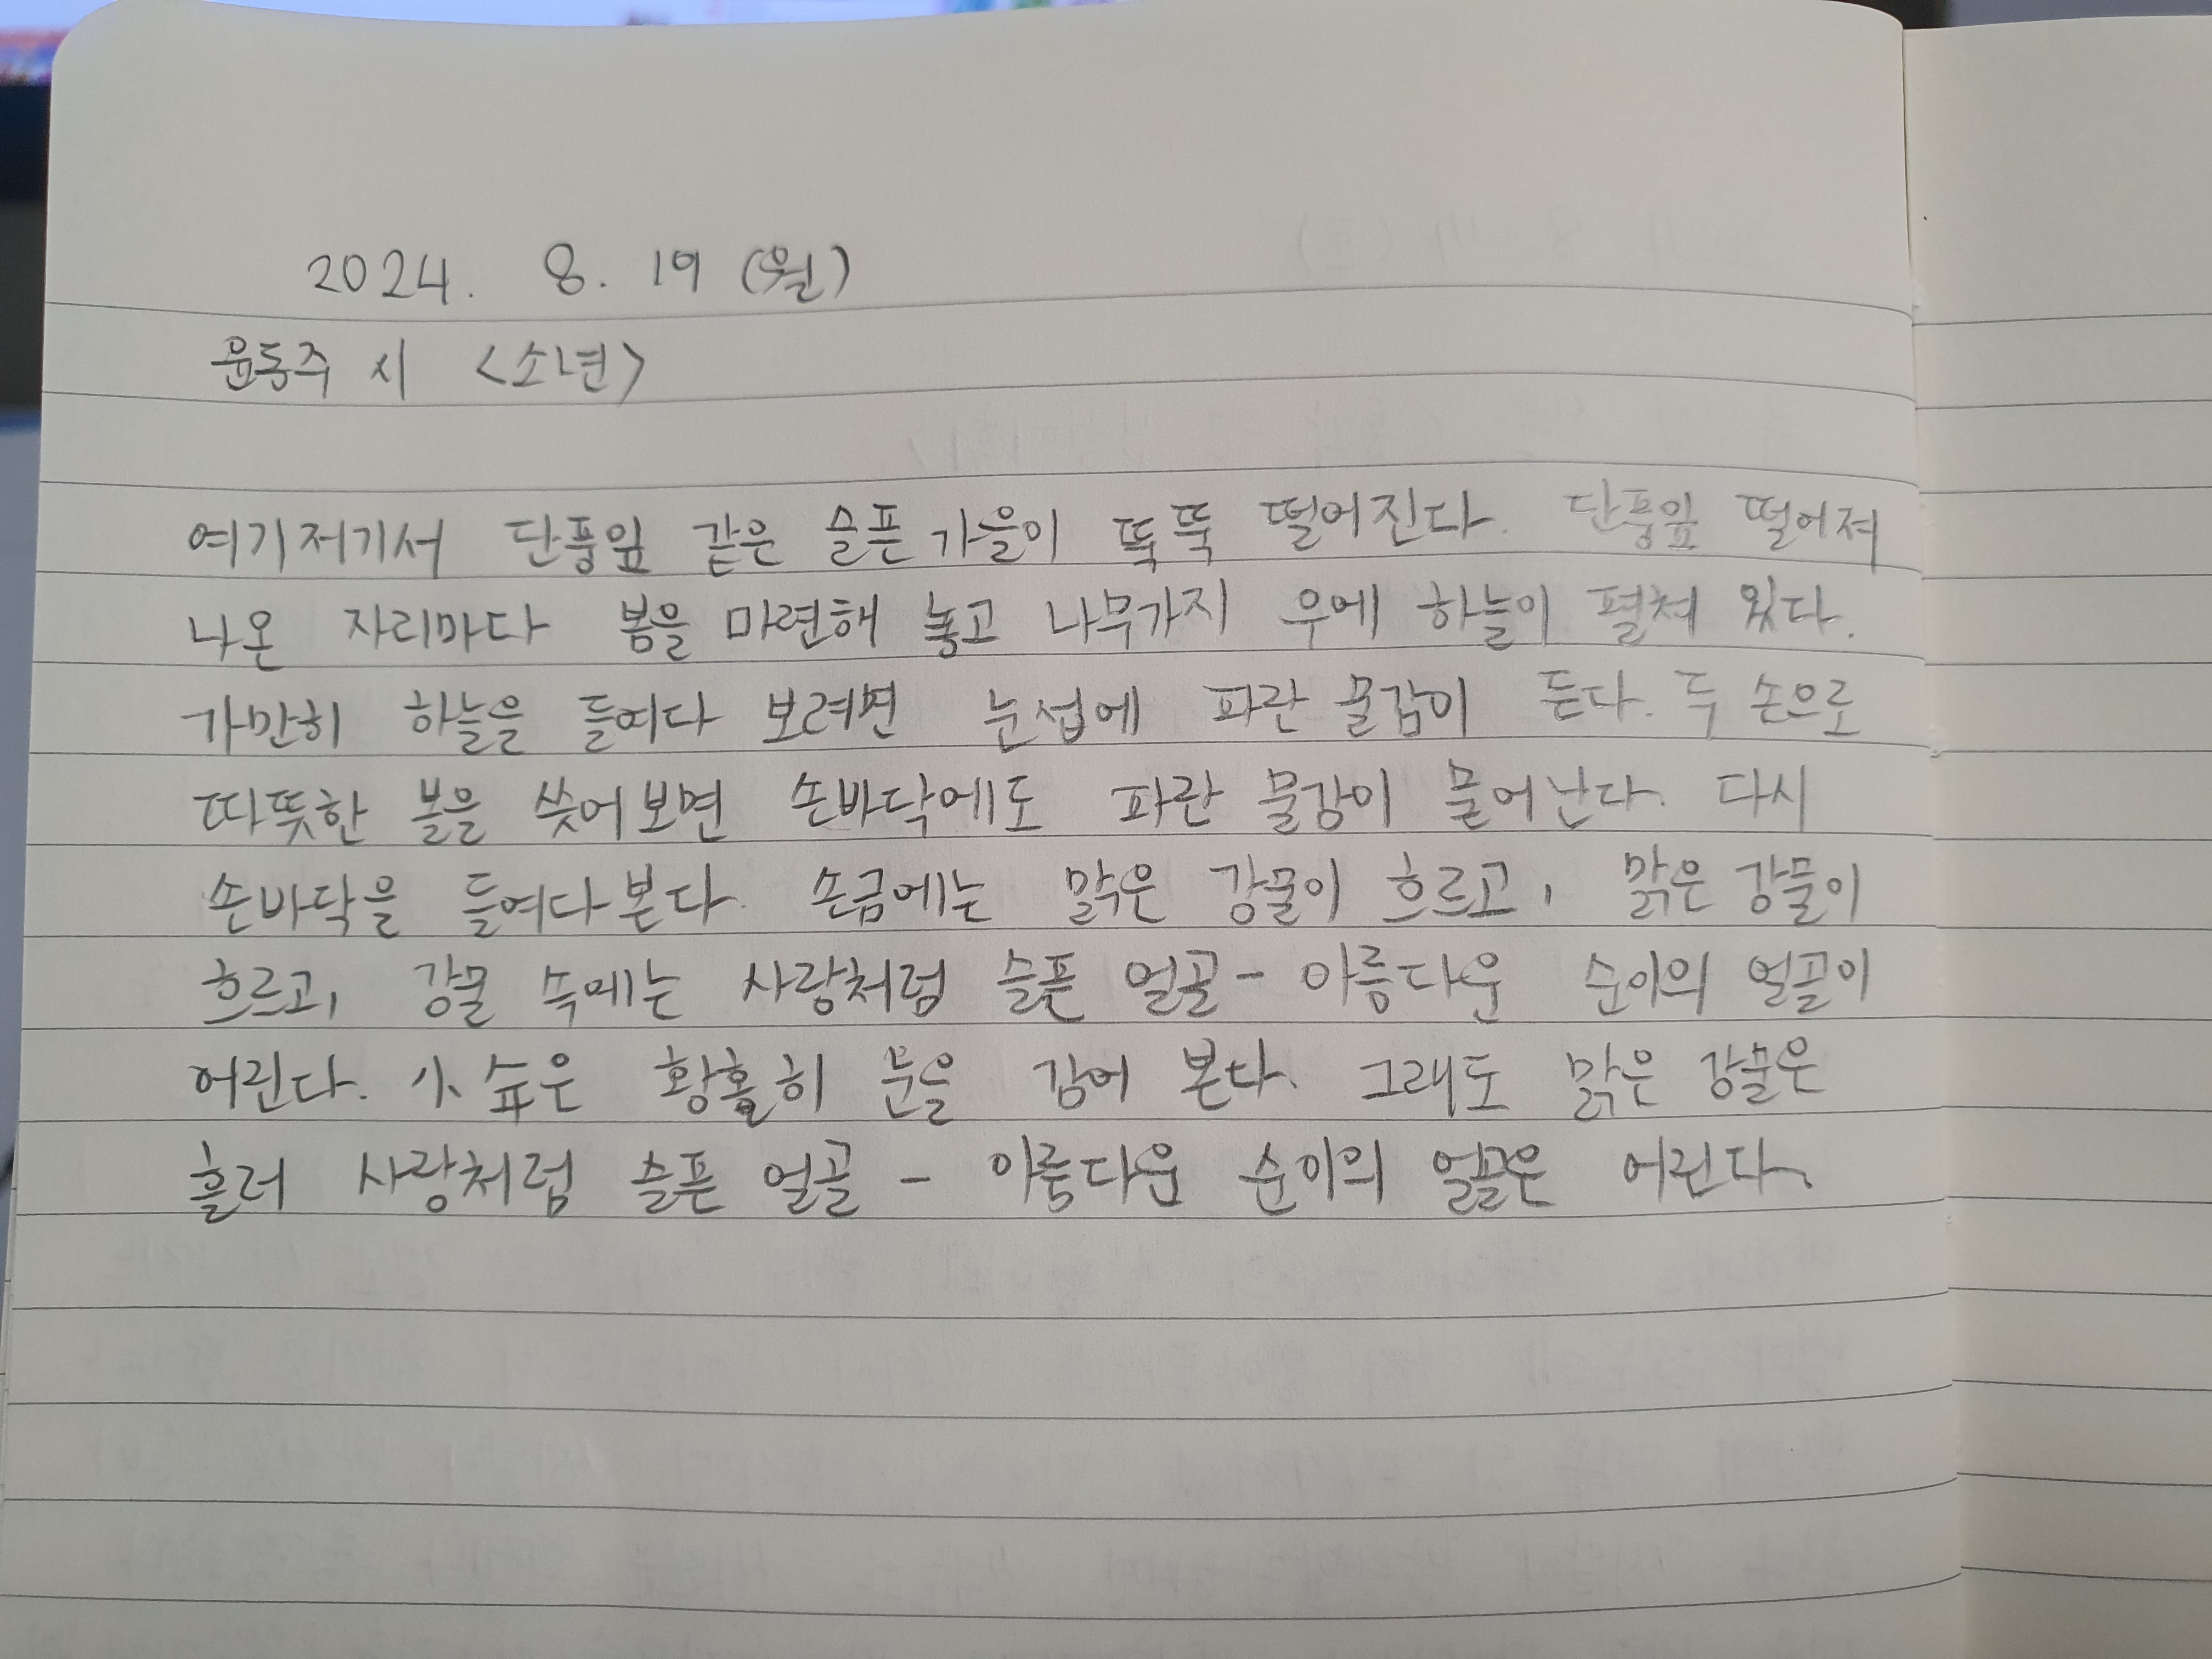 2024. 8. 19 (월)
윤동주 시 <소년>
여기저기서 단풍잎 같은 슬픈 가을이 뚝뚝 떨어진다. 단풍잎 떨어져
나온 자리마다 봄을 마련해 놓고 나무가지 우에 하늘이 펼쳐 있다.
가만히 하늘을 들여다 보려면 눈섭에 파란 물감이 든다. 두 손으로
따뜻한 볼을 쓧어보면 손바닥에도 파란 물감이 묻어난다. 다시
손바닥을 들여다본다. 손금에는 맑은 강물이 흐르고, 맑은 강물이
흐르고, 강물 속에는 사랑처럼 슬픈 얼골 - 아름다운 순이의 얼골이
어린다. 小슈은 황홀히 눈을 감어 본다. 그래도 맑은 강물은
흘러 사랑처럼 슬픈 얼골 - 아름다운 순이의 얼골은 어린다.